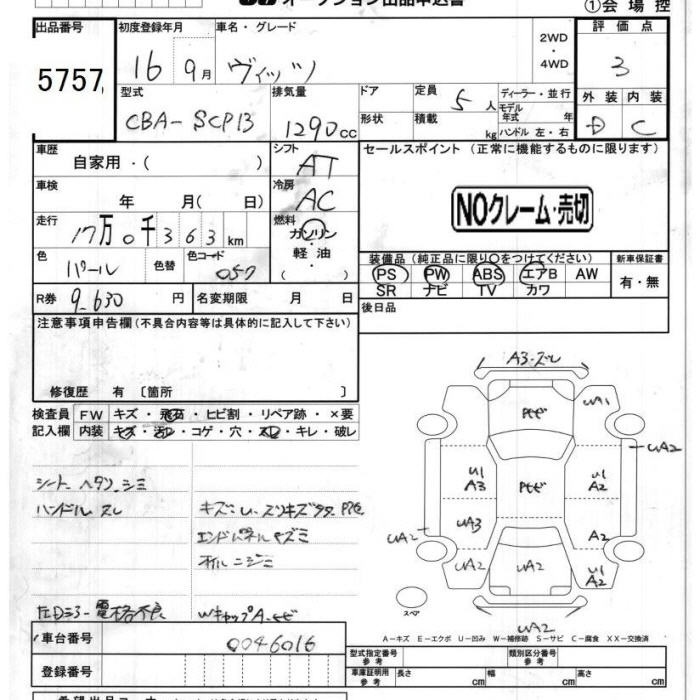 オークション出品申込書
①会場控
出品番号
5757
初度登録年月
16年 9月
車名・グレード
ヴィッツ
2WD
・
4WD
評価点
3
外装 内装
D C
型式
CBA-SCP13
排気量
1290cc
ドア
形状
定員 5人
積載 kg
ディーラー・並行
モデル年式 年
ハンドル 左・右
車歴
自家用・( )
シフト
AT
車検
年 月( 日)
冷房
AC
走行
17万0千363km
燃料
ガソリン
軽油
( )
色
パール
色替
色コード
057
R券 9,630円
名変期限 月 日
セールスポイント (正常に機能するものに限ります)
NOクレーム・売切
装備品(純正品に限り○をつけてください)
PS PW ABS エアB AW
SR ナビ TV カワ
新車保証書
有・無
後日品
注意事項申告欄(不具合内容等は具体的に記入して下さい)
修復歴 有 〔箇所 〕
検査員記入欄
FW キズ・飛石・ヒビ割・リペア跡・×要
内装 キズ・汚レ・コゲ・穴・スレ・キレ・破レ
シート ヘタリ、シミ
ハンドル スレ
エンドパネル キズミ
オイルニジミ
電格不良
A3・ズレ
UA1
Pモヒ
UA2
U1
A3
Pモヒ
U1
A2
UA3
UA2
A2
UA2
UA2
U1
A2
スペア
UA2
A-キズ E-エクボ U-凹み W-補修跡 S-サビ C-腐食 XX-交換済
車台番号 0046016
登録番号
型式指定番号
参考
類別区分番号
参考
車庫証明用
参考
長さ cm
幅 cm
高さ cm